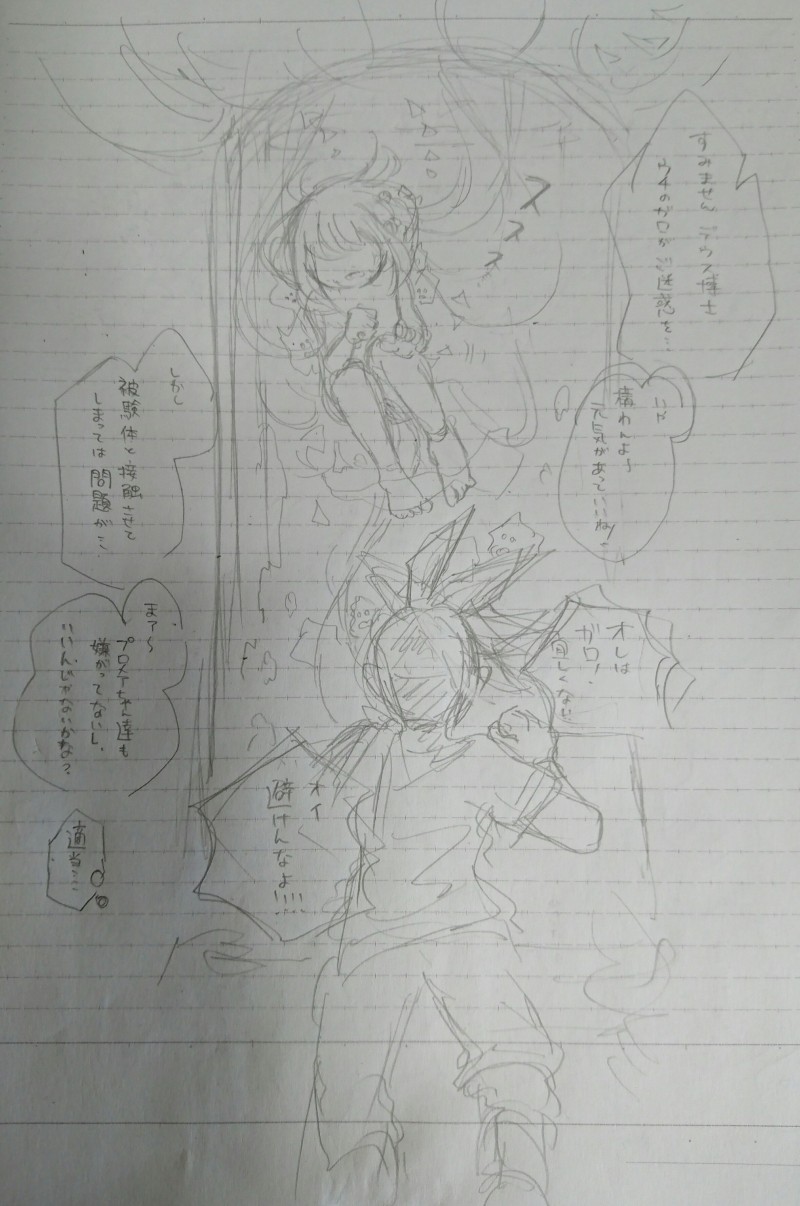 すみません デウス博士
ウチのガロがご迷惑を…
いや
構わんよ〜
元気があっていいね!
しかし
被験体と接触させて
しまっては問題が…
まア〜
プロスケちゃん達も
嫌がってないし、
いいんじゃないかな?
適当…
オレは
ガロ!
ス
ス
ス
オイ
避けんなよ!!!!